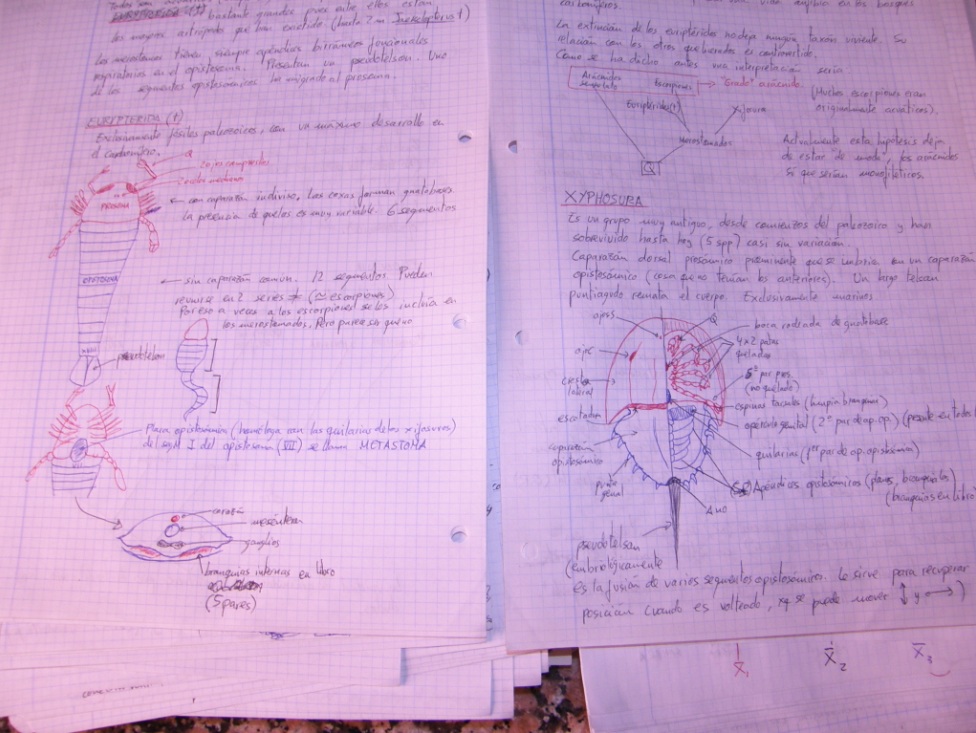 Todos son
bastante grandes pues entre ellos están
los mayores artrópodos que han existido (hasta 2 m
Los merostomas tienen siempre apéndices birrámeos foncionales
respiratorios en el opistosoma. Presentan un pseudotelson. Uno
de los segmentos opistosómicos ha migrado al prosoma.
EURIPTERIDA (†)
Exclusivamente fósiles paleozoicos, con un máximo desarrollo en
el carbonífero.
Q
2 ojos compuestos
2 ocelos medianos
PROSOMA
con caparazón indiviso. Las coxas forman gnatobases
la presencia de quelas es muy variable. 6 segmentos
OPISTOSOMA
sin caparazón común. 12 segmentos. Pueden
reunirse en 2 series ≠ (≃ escorpiones)
Por eso a veces a los escorpiones se los incluía en
los merostomados. Pero parece ser que no
ANO
pseudotelson
Placa opistosómica (homóloga con las quilarias de los xifosuros)
del segm I del opistosoma (VII) se llama METASTOMA
corazón
mesénteron
ganglios
branquias internas en libro
(5 pares)
carbonífero.
La extinción de los euriptéridos no deja ningún taxón viviente. Su
relación con los otros quelicerados es controvertida.
Como se ha dicho antes una interpretación sería
Arácnidos
Escorpiones
"Grado" arácnido
(Muchos escorpiones eran
originalmente acuáticos).
Euriptéridos(†)
Xifosura
Merostomados
Q
Actualmente esta hipótesis deja
de estar de moda, los arácnidos
sí que serían monofiléticos.
XYPHOSURA
Es un grupo muy antiguo, desde comienzos del paleozoico y han
sobrevivido hasta hoy (5 spp) casi sin variación.
Caparazón dorsal prosómico prominente que se imbrica en un caparazón
opistosómico (cosa que no tenían los anteriores). Un largo telson
puntiagudo remata el cuerpo. Exclusivamente marinos
ojos
Q
boca rodeada de gnatobase
4x2 patas
queladas
ojo
cresta
lateral
5º par pros.
(no quelado)
espinas táctiles (limpian branquias)
escotadura
opérculo genital (2º par de ap. op.) (presente en todos)
quilarias (1er par de ap. opistosómico)
caparazón
opistosómico
Punta
genal
Apéndices opistosómicos (planos, branquiales)
(branquias en libro)
ANO
pseudotelson
(embriológicamente
es la fusión de varios segmentos opistosómicos. Le sirve para recuperar
posición cuando es volteado, xq se puede mover ↕ y ↔)
X̄1
X̄2
X̄3